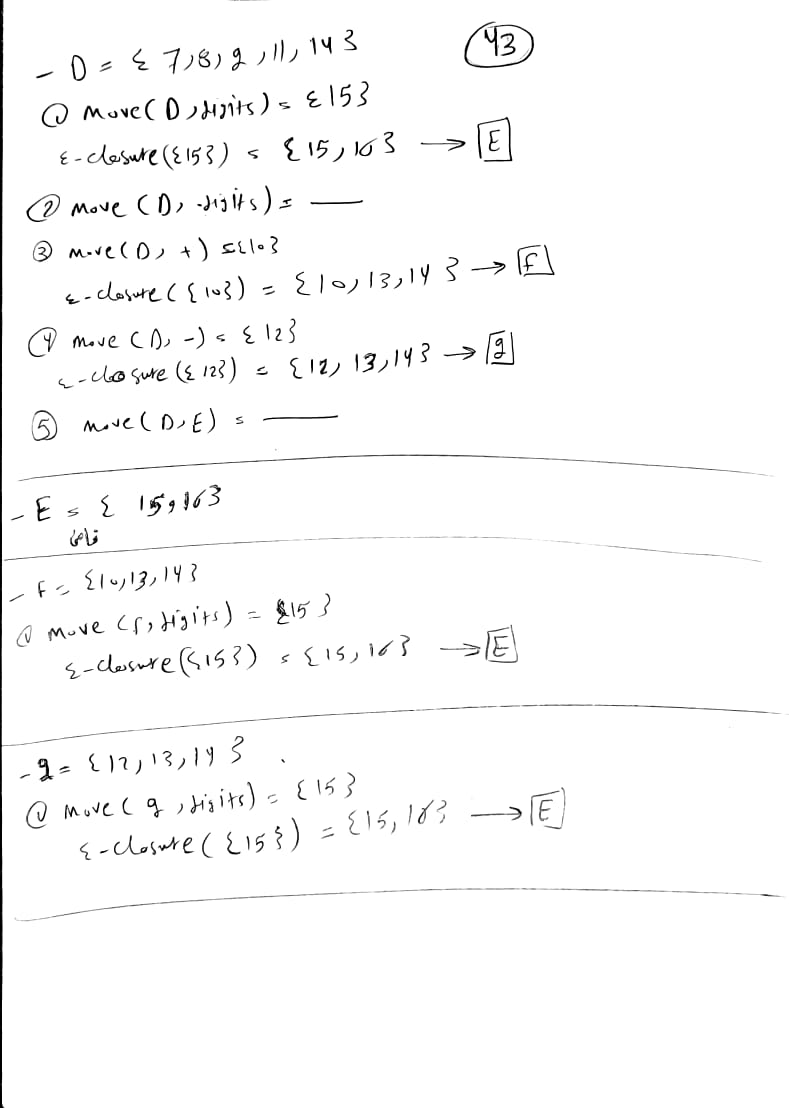 43
- D = { 7,8,9,11,14 }
① move(D,digits) = {15}
ε-closure({15}) = {15,16} → E
② move (D, .digits) = —
③ move(D, +) = {10}
ε-closure({10}) = {10,13,14} → F
④ move (D, -) = {12}
ε-closure({12}) = {12,13,14} → g
⑤ move(D,E) = —
- E = { 15,16}
- F = {10,13,14}
① move (F, digits) = {15}
ε-closure({15}) = {15,16} → E
- g = {12,13,14}
① move( g ,digits) = {15}
ε-closure({15}) = {15,16} → E